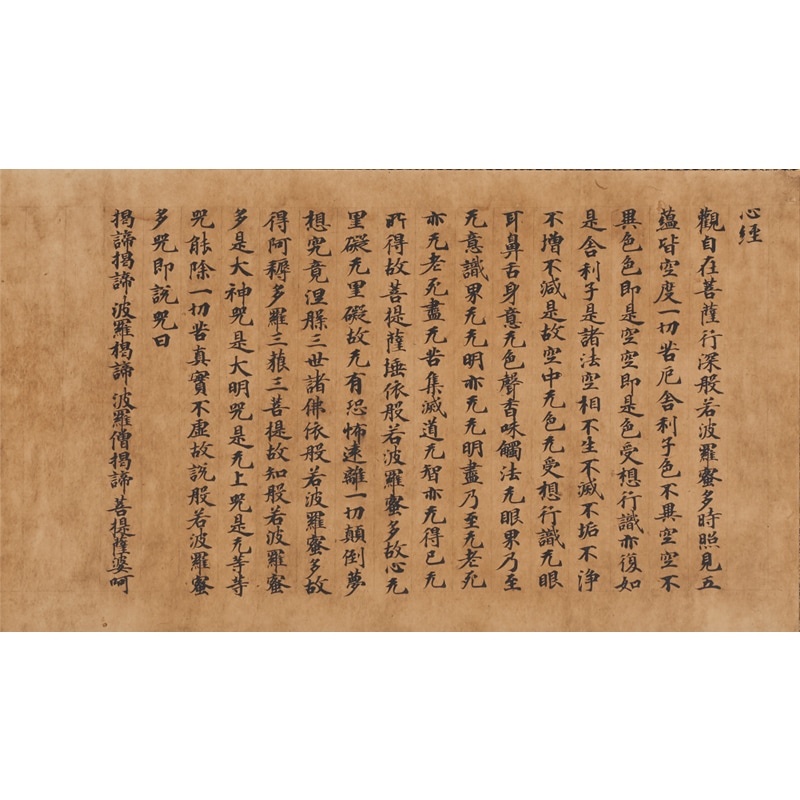 心經
觀自在菩薩行深般若波羅蜜多時照見五
蘊皆空度一切苦厄舍利子色不異空空不
異色色即是空空即是色受想行識亦復如
是舍利子是諸法空相不生不滅不垢不淨
不增不減是故空中无色无受想行識无眼
耳鼻舌身意无色聲香味觸法无眼界乃至
无意識界无无明亦无无明盡乃至无老死
亦无老死盡无苦集滅道无智亦无得已无
所得故菩提薩埵依般若波羅蜜多故心无
罣礙无罣礙故无有恐怖遠離一切顛倒夢
想究竟涅槃三世諸佛依般若波羅蜜多故
得阿耨多羅三藐三菩提故知般若波羅蜜
多是大神咒是大明咒是无上咒是无等等
咒能除一切苦真實不虛故說般若波羅蜜
多咒即說咒曰
揭諦揭諦 波羅揭諦 波羅僧揭諦 菩提薩婆呵